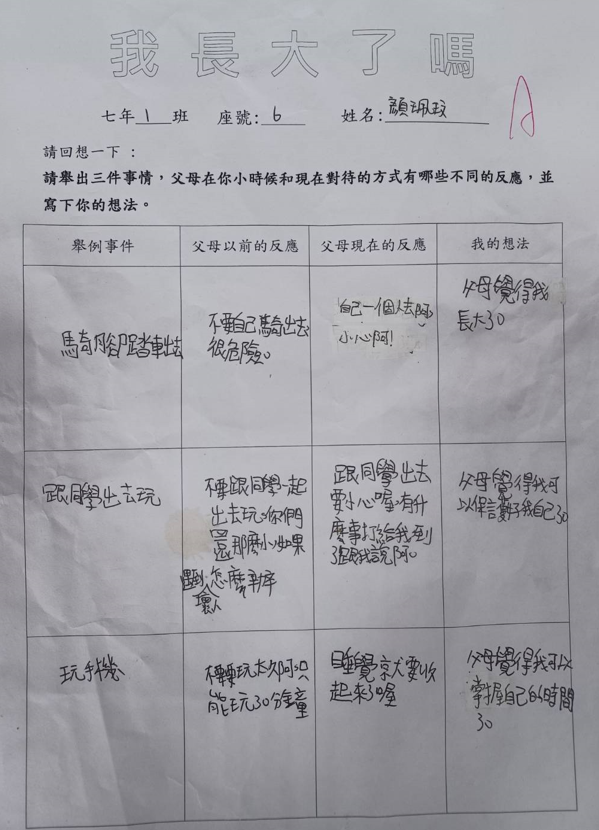 我長大了嗎
七年 1 班 座號: 6 姓名: 顏珮玟
A
請回想一下:
請舉出三件事情,父母在你小時候和現在對待的方式有哪些不同的反應,並
寫下你的想法。
舉例事件 父母以前的反應 父母現在的反應 我的想法
騎腳踏車出去
不要自己騎出去
很危險。
自己一個人去阿
小心阿!
父母覺得我
長大了。
跟同學出去玩
不要跟同學一起
出去玩。你們
還那麼小如果
遇到
壞人
怎麼辦
跟同學出去
要小心喔,有什
麼事打給我到
了跟我說阿。
父母覺得我可
以保護了我自己了。
玩手機
不要玩太久阿只
能玩30分鐘
睡覺
要收
起來了喔
父母覺得我可以
掌握自己的時間
了。